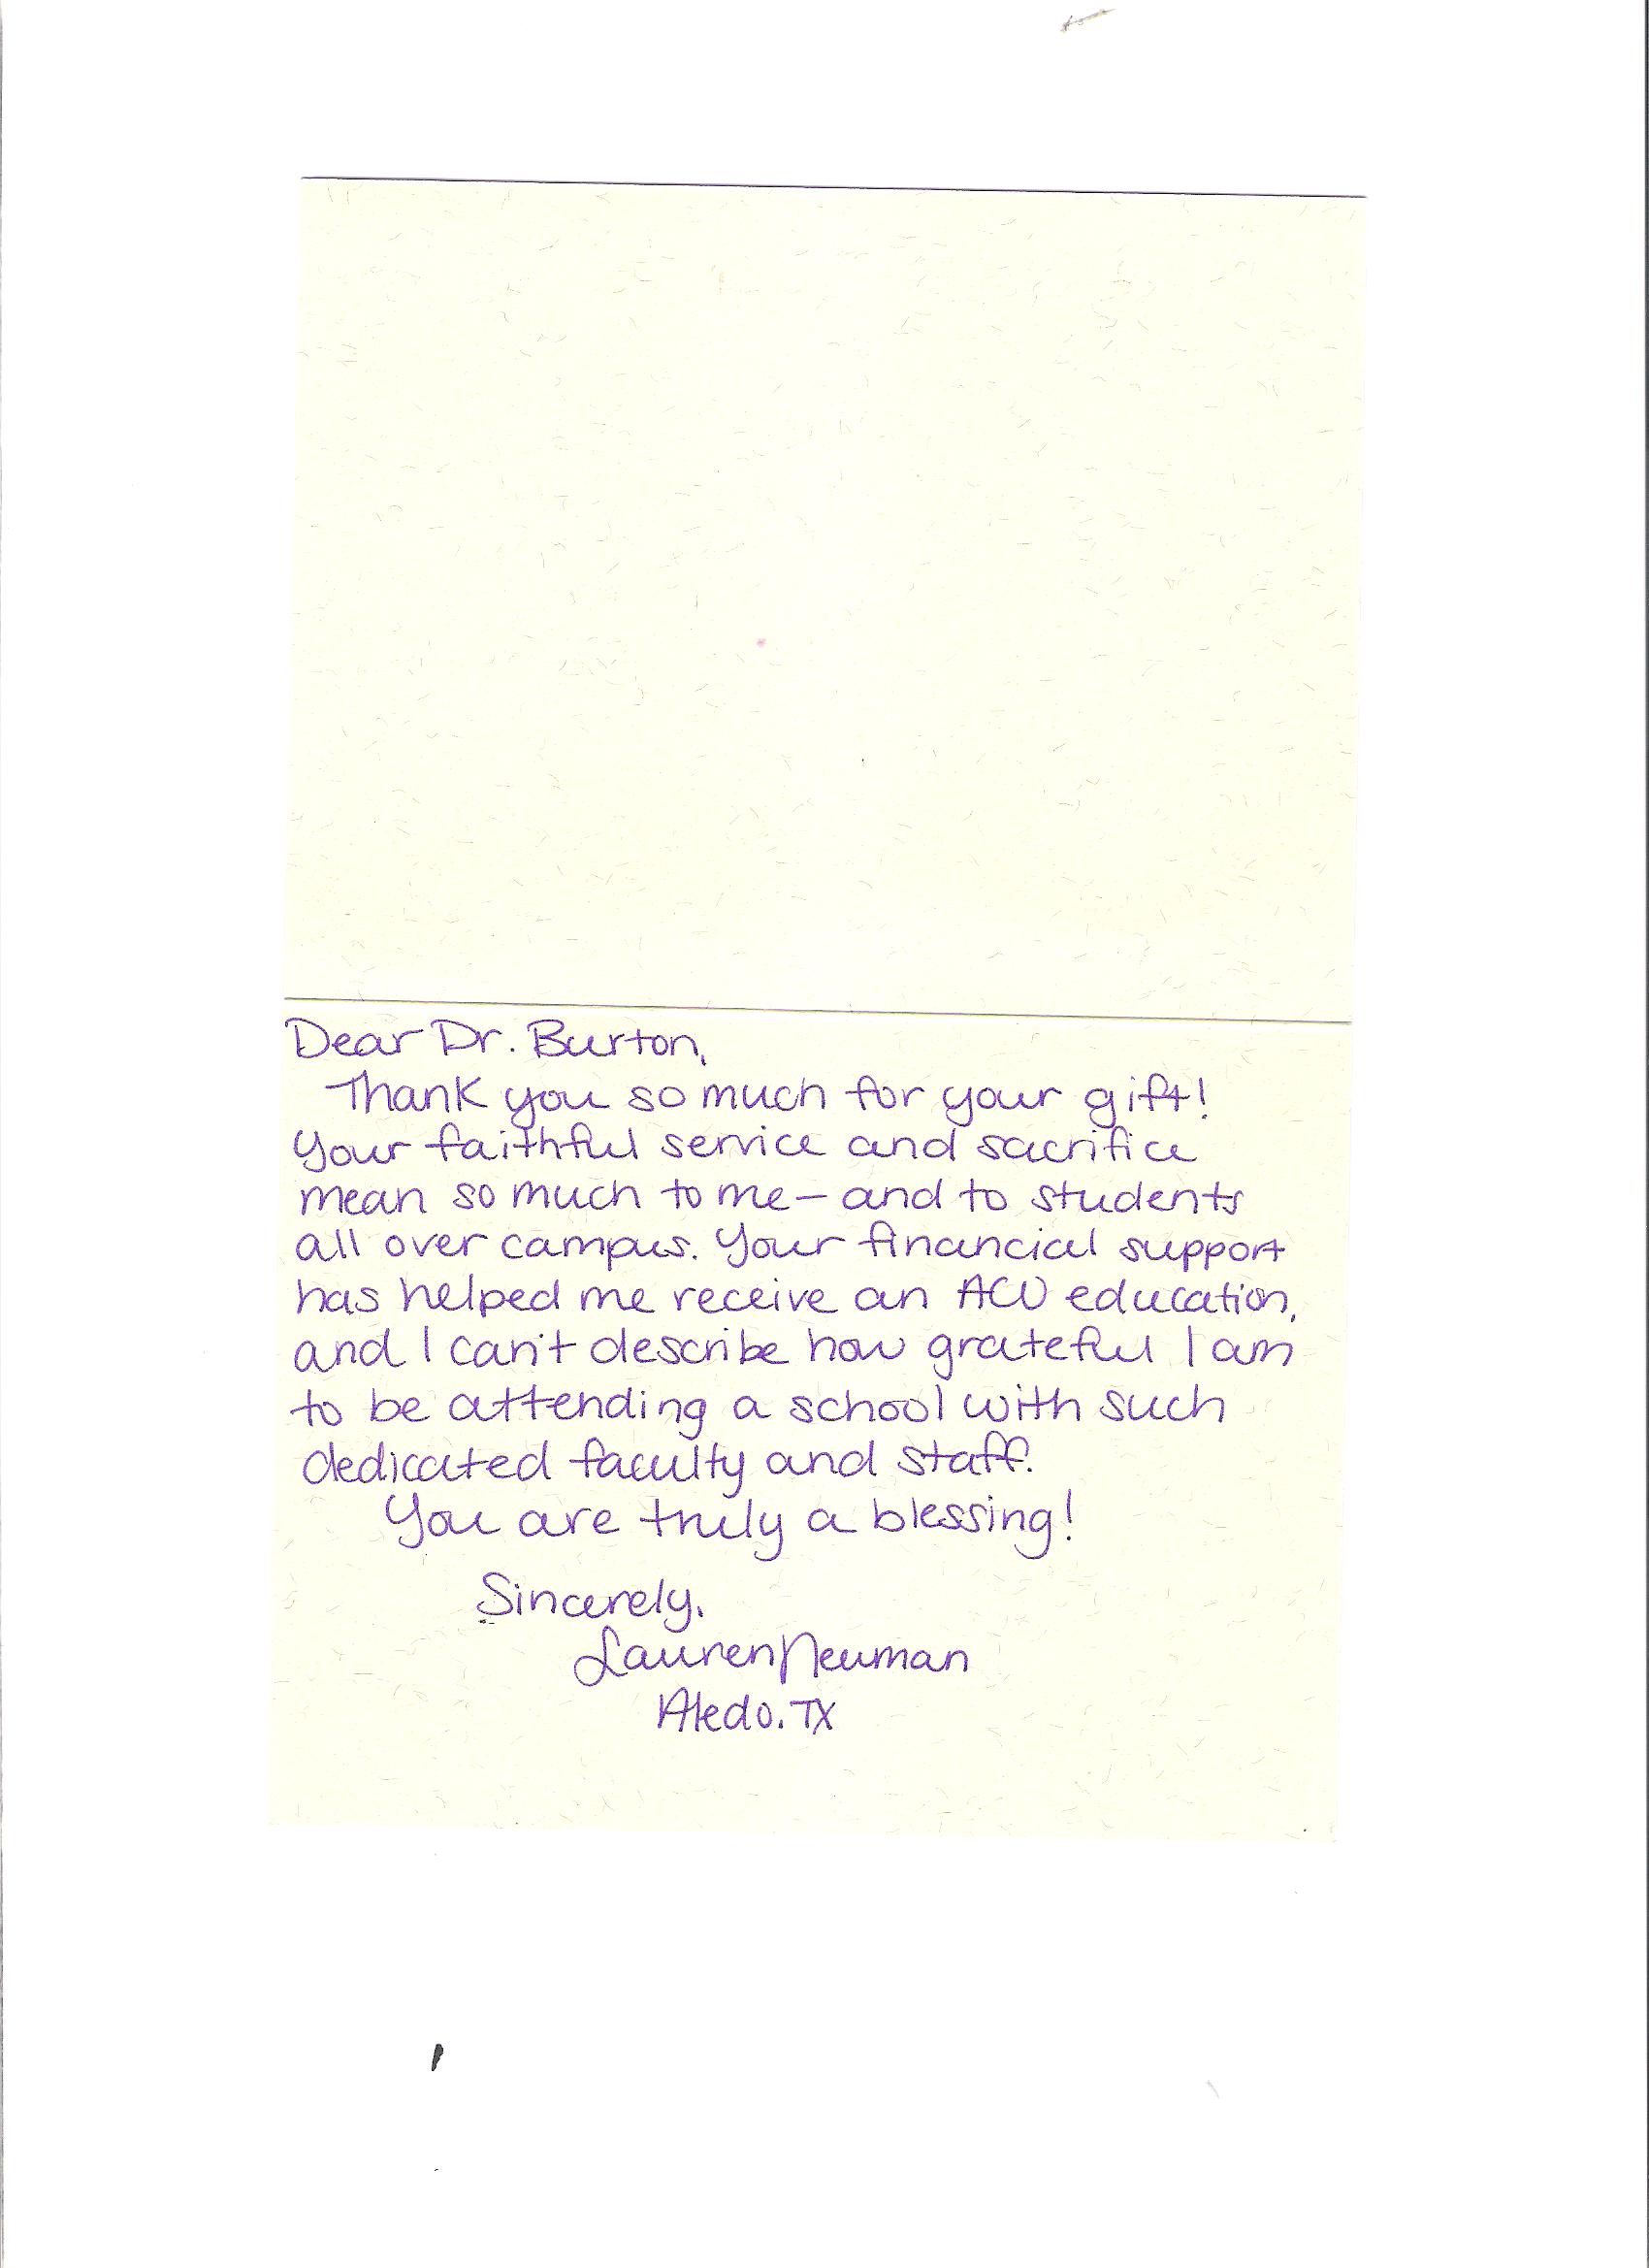 Dear Dr. Burton,
Thank you so much for your gift!
Your faithful service and sacrifice
mean so much to me — and to students
all over campus. Your financial support
has helped me receive an ACU education,
and I can't describe how grateful I am
to be attending a school with such
dedicated faculty and staff.
You are truly a blessing!
Sincerely,
Lauren Neuman
Aledo, TX